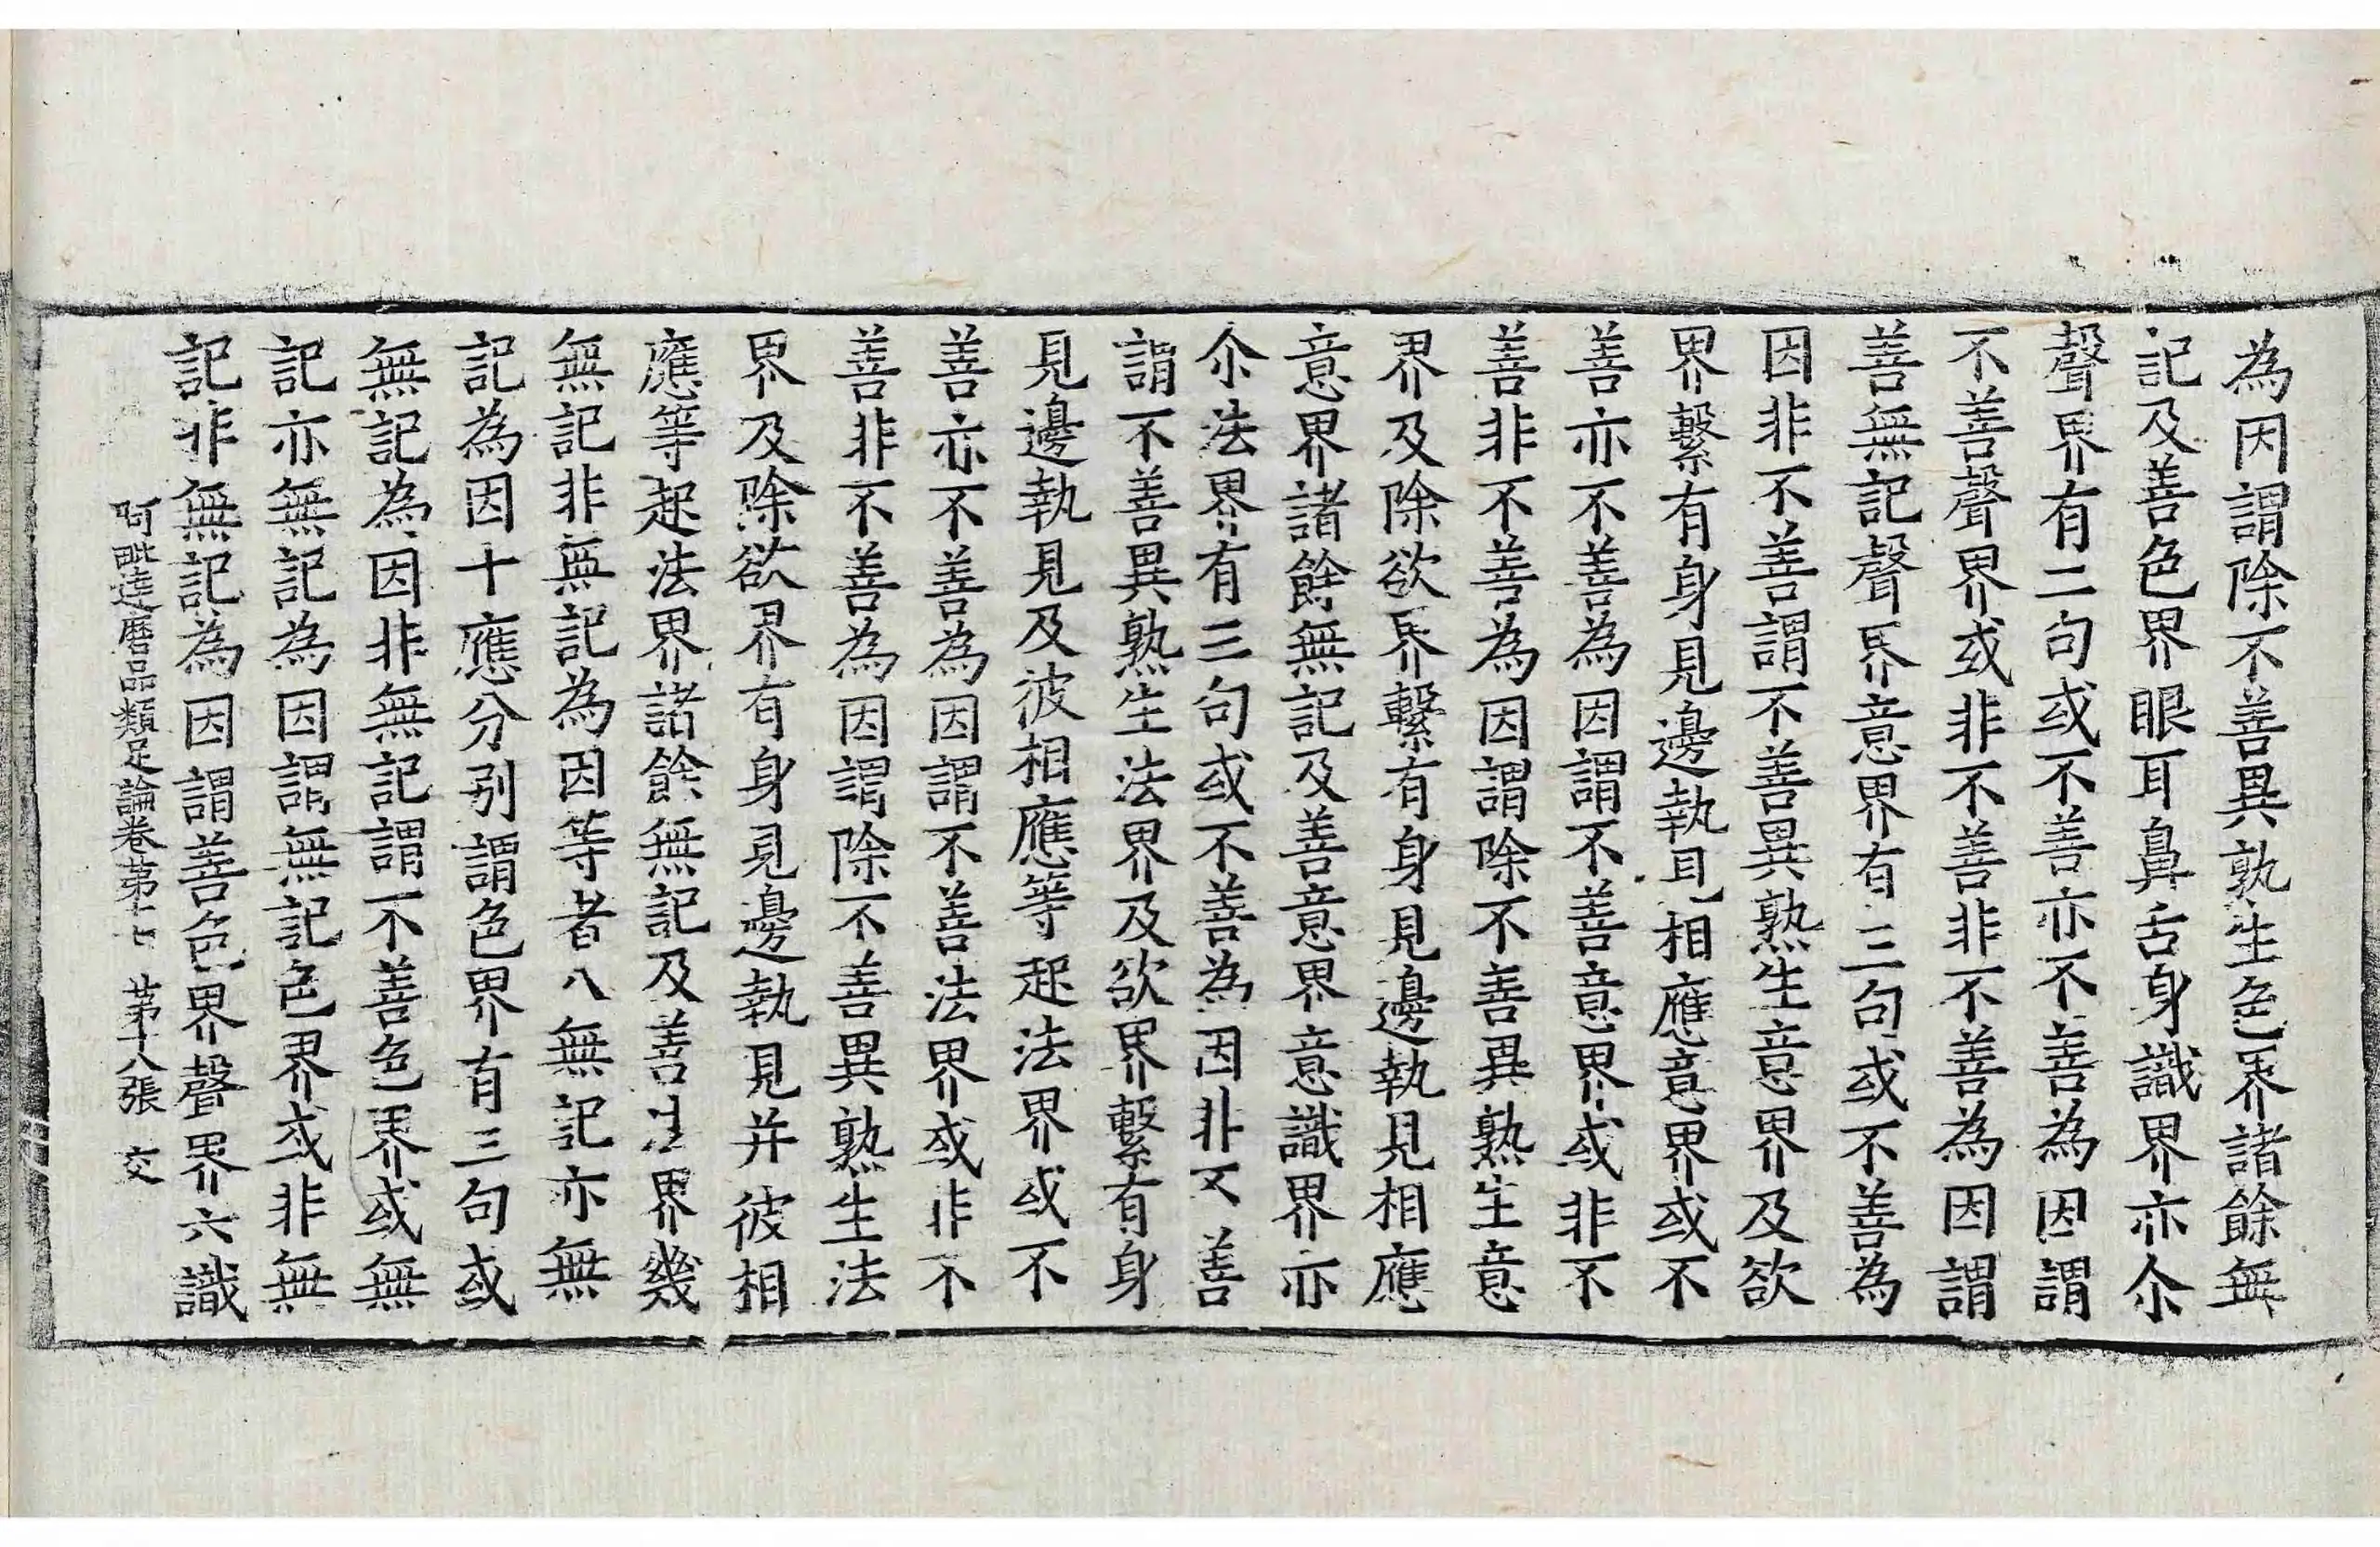 為因謂除不善異熟生色界諸餘無
記及善色界眼耳鼻舌身識界亦尒
聲界有二句或不善亦不善為因謂
不善聲界或非不善非不善為因謂
善無記聲界意界有三句或不善為
因非不善謂不善異熟生意界及欲
界繫有身見邊執見相應意界或不
善亦不善為因謂不善意界或非不
善非不善為因謂除不善異熟生意
界及除欲界繫有身見邊執見相應
意界諸餘無記及善意界意識界亦
尒法界有三句或不善為因非不善
謂不善異熟生法界及欲界繫有身
見邊執見及彼相應等起法界或不
善亦不善為因謂不善法界或非不
善非不善為因謂除不善異熟生法
界及除欲界有身見邊執見并彼相
應等起法界諸餘無記及善法界幾
無記非無記為因等者八無記亦無
記為因十應分別謂色界有三句或
無記為因非無記謂不善色界或無
記亦無記為因謂無記色界或非無
記非無記為因謂善色界聲界六識
阿毗達磨品類足論卷第十七 第十八張 交